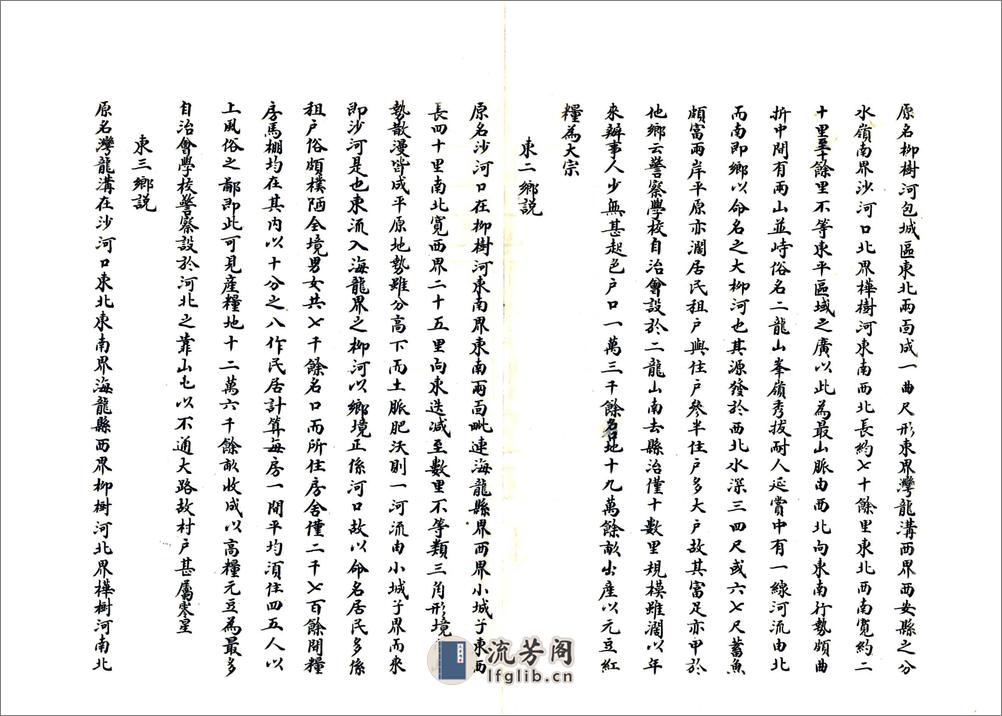 原名柳樹河包城區東北兩面成一曲尺形東界灣龍溝西界西安縣之分
水嶺南界沙河口北界樺樹河東南西北長約七十餘里東北西南寬約二
十里至十餘里不等東平區域之廣以此為最山脈由西北向東南行勢頗曲
折中間有兩山並峙俗名二龍山峯嶺秀拔耐人延賞中有一線河流由北
而南即鄉以命名之大柳河也其源發於西北水深三四尺或六七尺蓄魚
頗富兩岸平原亦濶居民租戶與住戶參半住戶多大戶故其富足亦甲於
他鄉云警察學校自治會設於二龍山南去縣治僅十數里規模雖濶以年
來辦事人少無甚起色戶口一萬三千餘名地十九萬餘畝出產以元豆紅
糧為大宗
東二鄉說
原名沙河口在柳樹河東南界東南兩面毗連海龍縣界西界小城子東西
長四十里南北寬西界二十五里向東迭減至數里不等類三角形境
勢散漫皆成平原地勢雖分高下而土脈肥沃則一河流由小城子界而來
即沙河是也東流入海龍界之柳河以鄉境正係河口故以命名居民多係
租戶俗頗樸陋全境男女共七千餘名口而所住房舍僅二千七百餘間糧
房馬棚均在其內以十分之八作民居計算每房一間平均須住四五人以
上風俗之鄙即此可見產糧地十二萬六千餘畝收成以高糧元豆為最多
自治會學校警察設於河北之靠山屯以不通大路故村戶甚屬寥星
東三鄉說
原名灣龍溝在沙河口東北東南界海龍縣西界柳樹河北界樺樹河南北
流芳阁
lfglib.cn